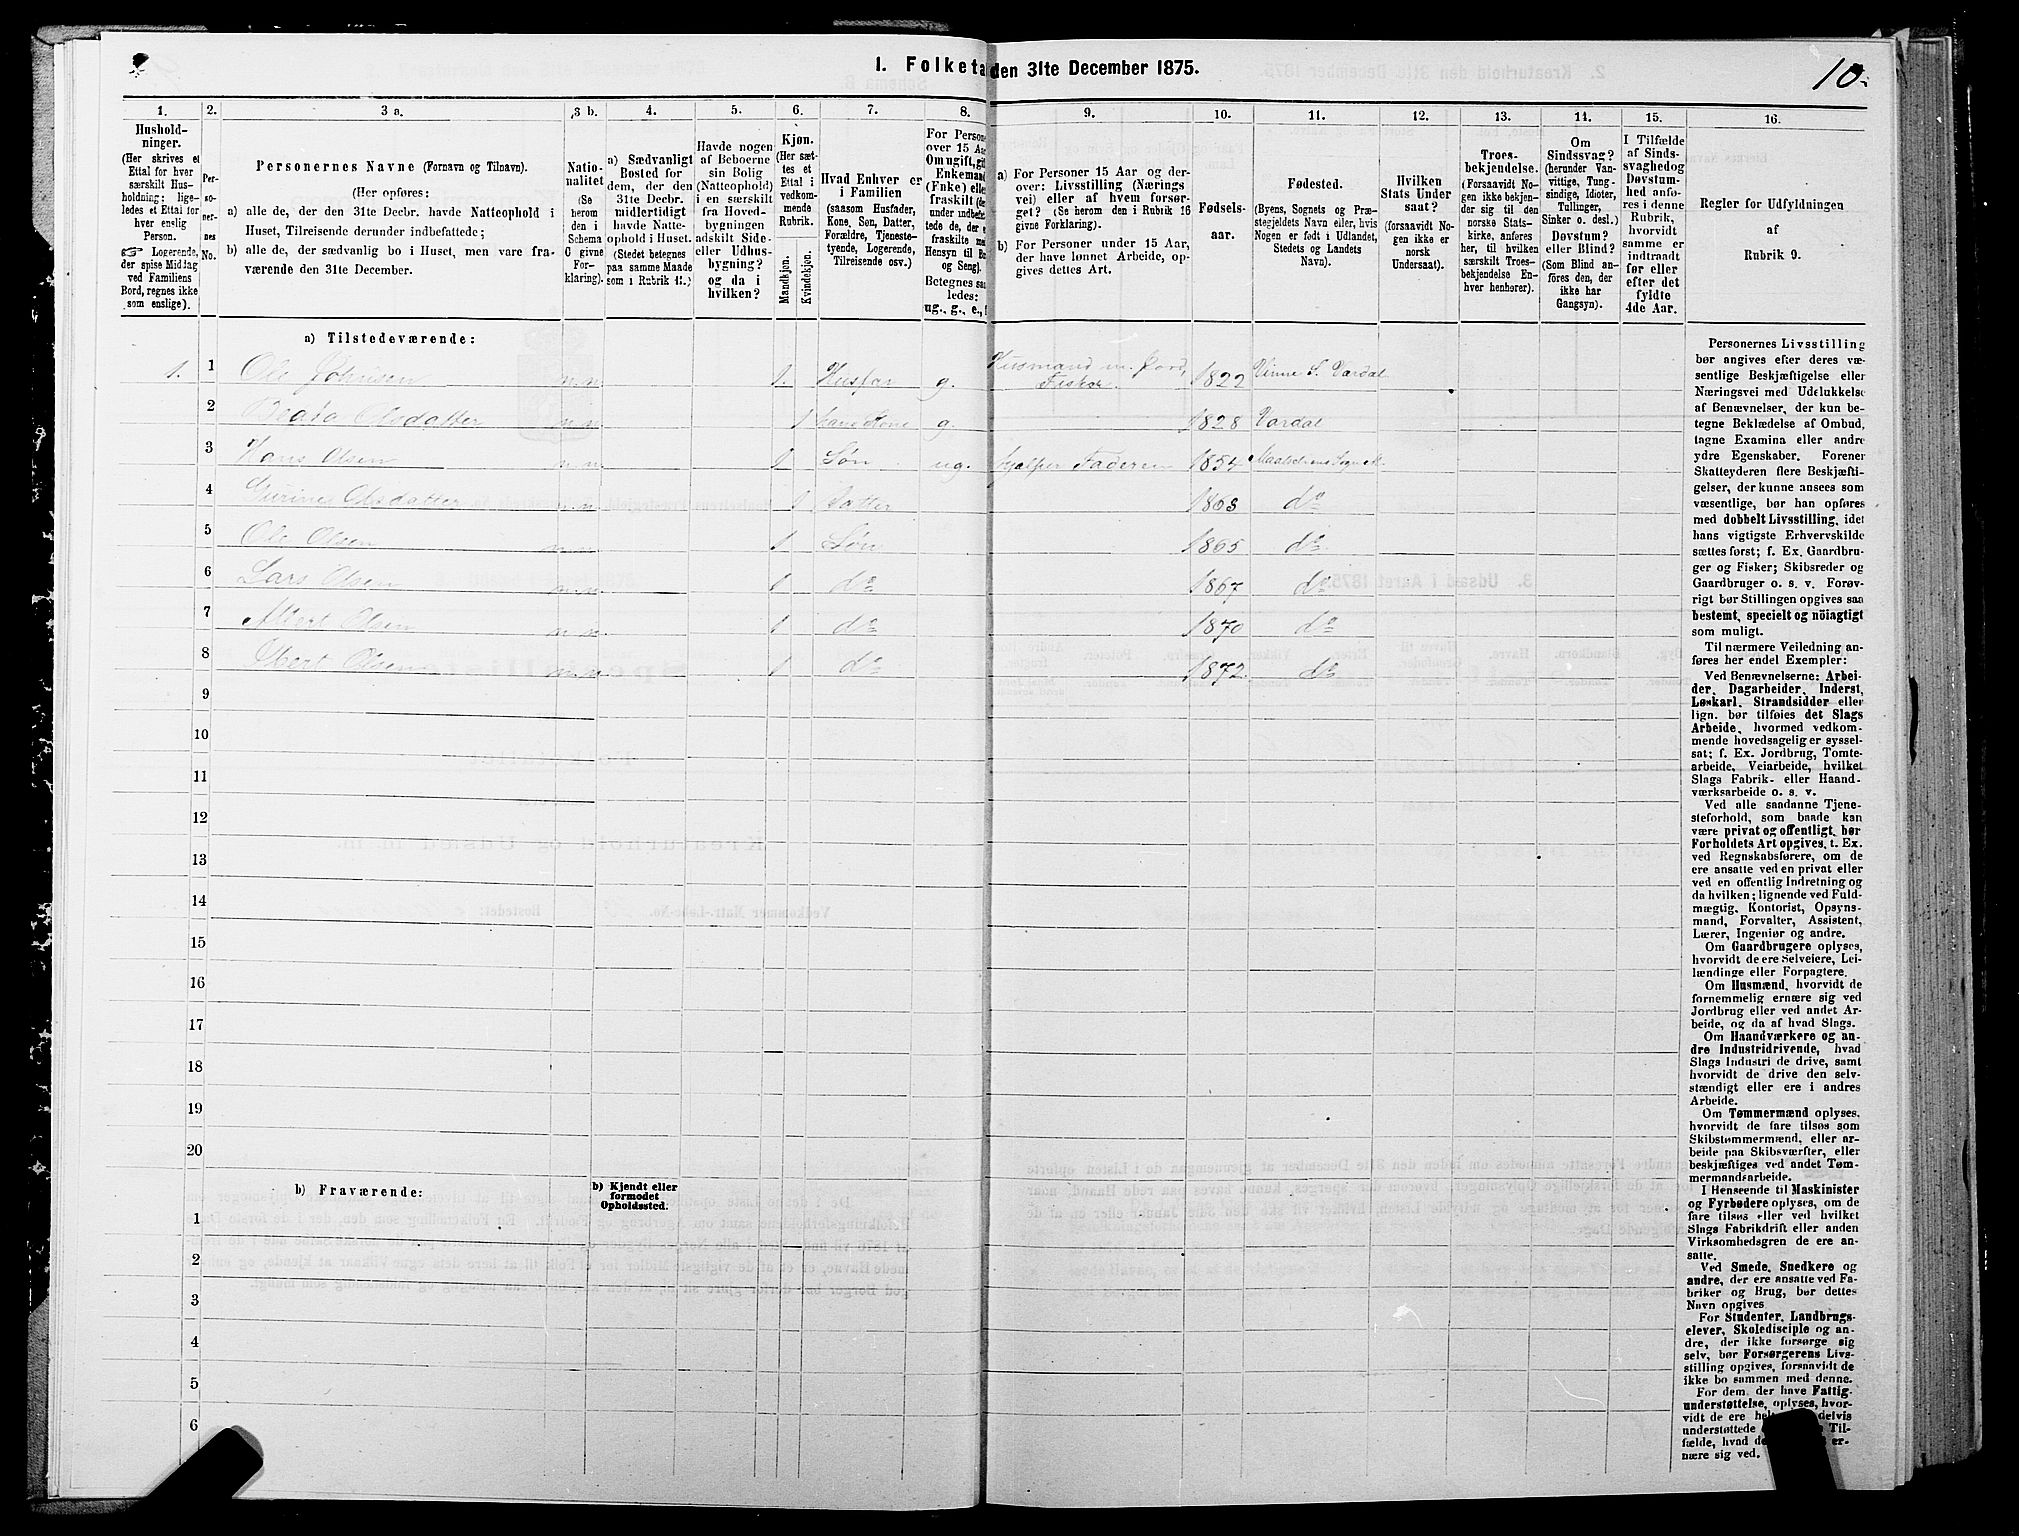 1. Folketa den 31te December 1875.
10.
1. 2. 3 a. 3 b. 4. 5. 6. 7. 8. 9. 10. 11. 12. 13. 14. 15. 16.
Hushold-
ninger.
(Her skrives et
Ettal for hver
særskilt Hus-
holdning; lige-
ledes et Ettal for
hver enslig
Person.
☞ Logerende,
der spise Middag
ved Familiens
Bord, regnes ikke
som enslige).
Per-
so-
ner-
nes
No.
Personernes Navne (Fornavn og Tilnavn).
(Her opføres:
a) alle de, der den 31te Decbr. havde Natteophold i
Huset, Tilreisende derunder indbefattede;
b) alle de, der sædvanlig bo i Huset, men vare fra-
værende den 31te December.
Natio-
nalitet
(Se
herom
den i
Schema
C givne
For-
klaring).
a) Sædvanligt
Bosted for
dem, der den
31te Decbr.
midlertidigt
havde Natte-
ophold i Huset.
(Stedet betegnes
paa samme Maade
som i Rubrik 11.)
Havde nogen
af Beboerne
sin Bolig
(Natteophold)
i en særskilt
fra Hoved-
bygningen
adskilt Side-
eller Udhus-
bygning?
og da i
hvilken?
Kjøn.
(Her sæt-
tes et
Ettal i
vedkom-
mende
Rubrik.
Mandkjøn.
Kvindekjøn.
Hvad Enhver er
i Familien
(saasom Husfader,
Kone, Søn, Datter,
Forældre, Tjeneste-
tyende, Logerende,
Tilreisende osv.).
For Persone
over 15 Aar
Om ugift, gif
Enkemand
(Enke) elle
fraskilt (de
under indbefa
tede de, der e
fraskilte me
Hensyn til Bo
og Seng).
Betegnes saa
ledes:
ug., g., e., f
a) For Personer 15 Aar og der-
over: Livsstilling (Nærings
vei) eller af hvem forsør-
get? (Se herom den i Rubrik 16
givne Forklaring).
b) For Personer under 15 Aar,
der have lønnet Arbeide, op-
gives dettes Art.
Fødsels-
aar.
Fødested.
(Byens, Sognets og Præ-
stegjeldets Navn eller, hvis
Nogen er født i Udlandet,
Stedets og Landets
Navn).
Hvilken
Stats Under
saat?
(forsaavidt No-
gen ikke er
norsk
Undersaat).
Troes-
bekjendelse.
(Forsaavidt No-
gen ikke bekjen-
der sig til den
norske Stats-
kirke, anføres
her, til hvilken
særskilt Troes-
bekjendelse En-
hver henhører).
Om
Sindssvag?
(herunder Van-
vittige, Tung-
sindige, Idioter,
Tullinger,
Sinker o. desl.)
Døvstum?
eller Blind?
(Som Blind an-
føres den, der
ikke har
Gangsyn).
I Tilfælde
af Sinds-
svaghed og
Døvstum-
hed anfø-
res i denne
Rubrik,
hvorvidt
samme er
indtraadt
før eller
efter det
fyldte
4de Aar.
Regler for Udfyldningen
af
Rubrik 9.
a) Tilstedeværende:
1. 1 Ole Johnsen n.n. 1. Husfar g. Husmand m. Jord, Fisker. 1822 Vinne S. Værdal
2 Beata Olsdatter n.n. 1 hans Kone g. 1828 Værdal
3 Hans Olsen n.n. 1 Søn ug. hjelper Faderen 1854 Maalselvens Sogn
4 Olsdatter n.n. 1 Datter 1863 do
5 Ole Olsen n.n. 1 Søn 1865 do
6 Lars Olsen n.n. 1 do 1867 do
7 Albert Olsen n.n. 1 do 1870 do
8 Ebert Olsen n.n. 1 do 1872. do
9
10
11
12
13
14
15
16
17
18
19
20
b) Fraværende:
b) Kjendt eller
formodet
Opholdssted.
1
2
3
4
5
6
Personernes Livsstilling
bør angives efter deres væ-
sentlige Beskjæftigelse eller
Næringsvei med Udelukkelse
af Benævnelser, der kun be-
tegne Beklædelse af Ombud,
tagne Examina eller andre
ydre Egenskaber. Forener
Skatteyderen flere Beskjæfti-
gelser, der kunne ansees som
væsentlige, bør han opføres
med dobbelt Livsstilling, idet
hans vigtigste Erhvervskilde
sættes først; f. Ex. Gaardbru-
ger og Fisker; Skibsreder og
Gaardbruger o. s. v. Forøv-
rigt bør Stillingen opgives saa
bestemt, specielt og nöiagtigt
som muligt.
Til nærmere Veiledning an-
føres her endel Exempler:
Ved Benævnelserne: Arbei-
der, Dagarbeider, Inderst,
Løskarl, Strandsidder eller
lign. bør tilføies det Slags
Arbeide, hvormed vedkom-
mende hovedsagelig er syssel-
sat; f. Ex. Jordbrug, Tomte-
arbeide, Veiarbeide, hvilket
Slags Fabrik- eller Haand-
værksarbeide o. s. v.
Ved alle saadanne Tjene-
steforhold, som baade kan
være privat og offentligt, bør
Forholdets Art opgives, t. Ex.
ved Regnskabsførere, om de
ere ansatte ved en privat eller
ved en offentlig Indretning og
da hvilken; lignende ved Fuld-
mægtig, Kontorist, Opsyns-
mand, Forvalter, Assistent,
Lærer, Ingeniør og andre.
Om Gaardbrugere oplyses,
hvorvidt de ere Selveiere, Lei-
lændinge eller Forpagtere.
Om Husmænd, hvorvidt de
fornemmelig ernære sig ved
Jordbrug eller ved andet Ar-
beide, og da af hvad Slags.
Om Haandværkere og an-
dre Industridrivende, hvad
Slags Industri de drive, samt
hvorvidt de drive den selv-
stændigt eller ere i andres
Arbeide.
Om Tømmermænd oplyses,
hvorvidt de fare tilsøs som
Skibstømmermænd, eller ar-
beide paa Skibsværfter, eller
beskjæftiges ved andet Tøm-
mermandsarbeide.
I Henseende til Maskinister
og Fyrbødere oplyses, om de
fare tilsøs eller ved hvilket
Slags Fabrikdrift eller anden
Virksomhedsgren de ere an-
satte.
Ved Smede, Snedkere og
andre, der ere ansatte ved Fa-
briker og Brug, bør dettes
Navn opgives
For Studenter, Landbrugs-
elever, Skoledisciple og an-
dre, der ikke forsørge sig
selv, bør Forsørgerens Livs-
stilling opgives, forsaavidt de
ikke bo sammen med denne.
For dem, der have Fattig-
understøttelse, oplyses, hvor-
vidt de ere delvis
understøttede Til-
fælde, hvad er-
nære sig ved.